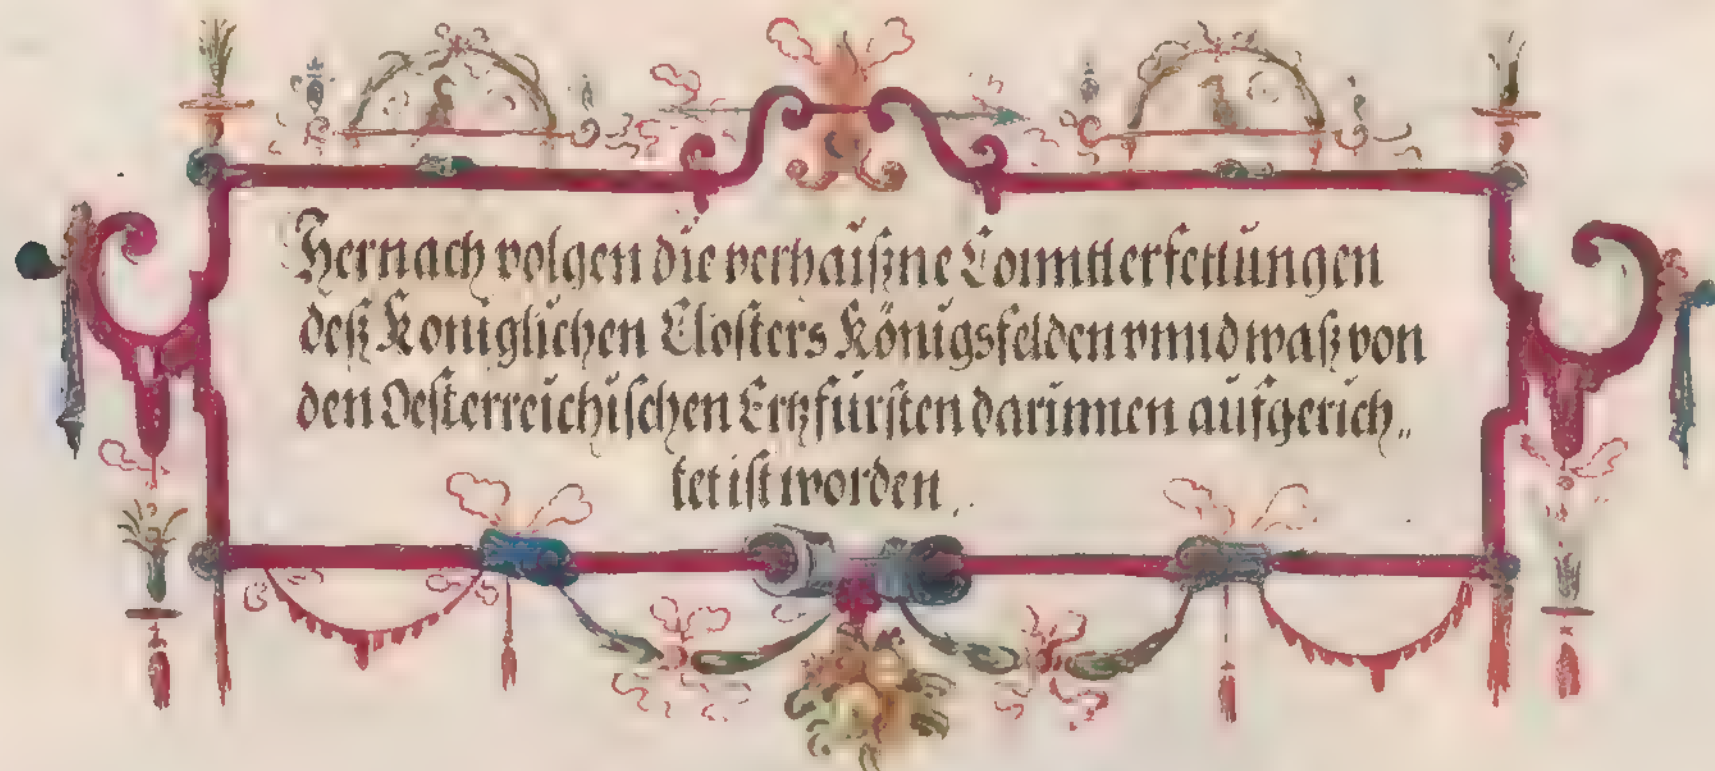 Hernach volgen die verhaißne Counterfettungen
deß Königlichen Closters Königsfelden vnnd waß von
den Oesterreichischen Ertzfürsten darinnen aufgerich„
tet ist worden.